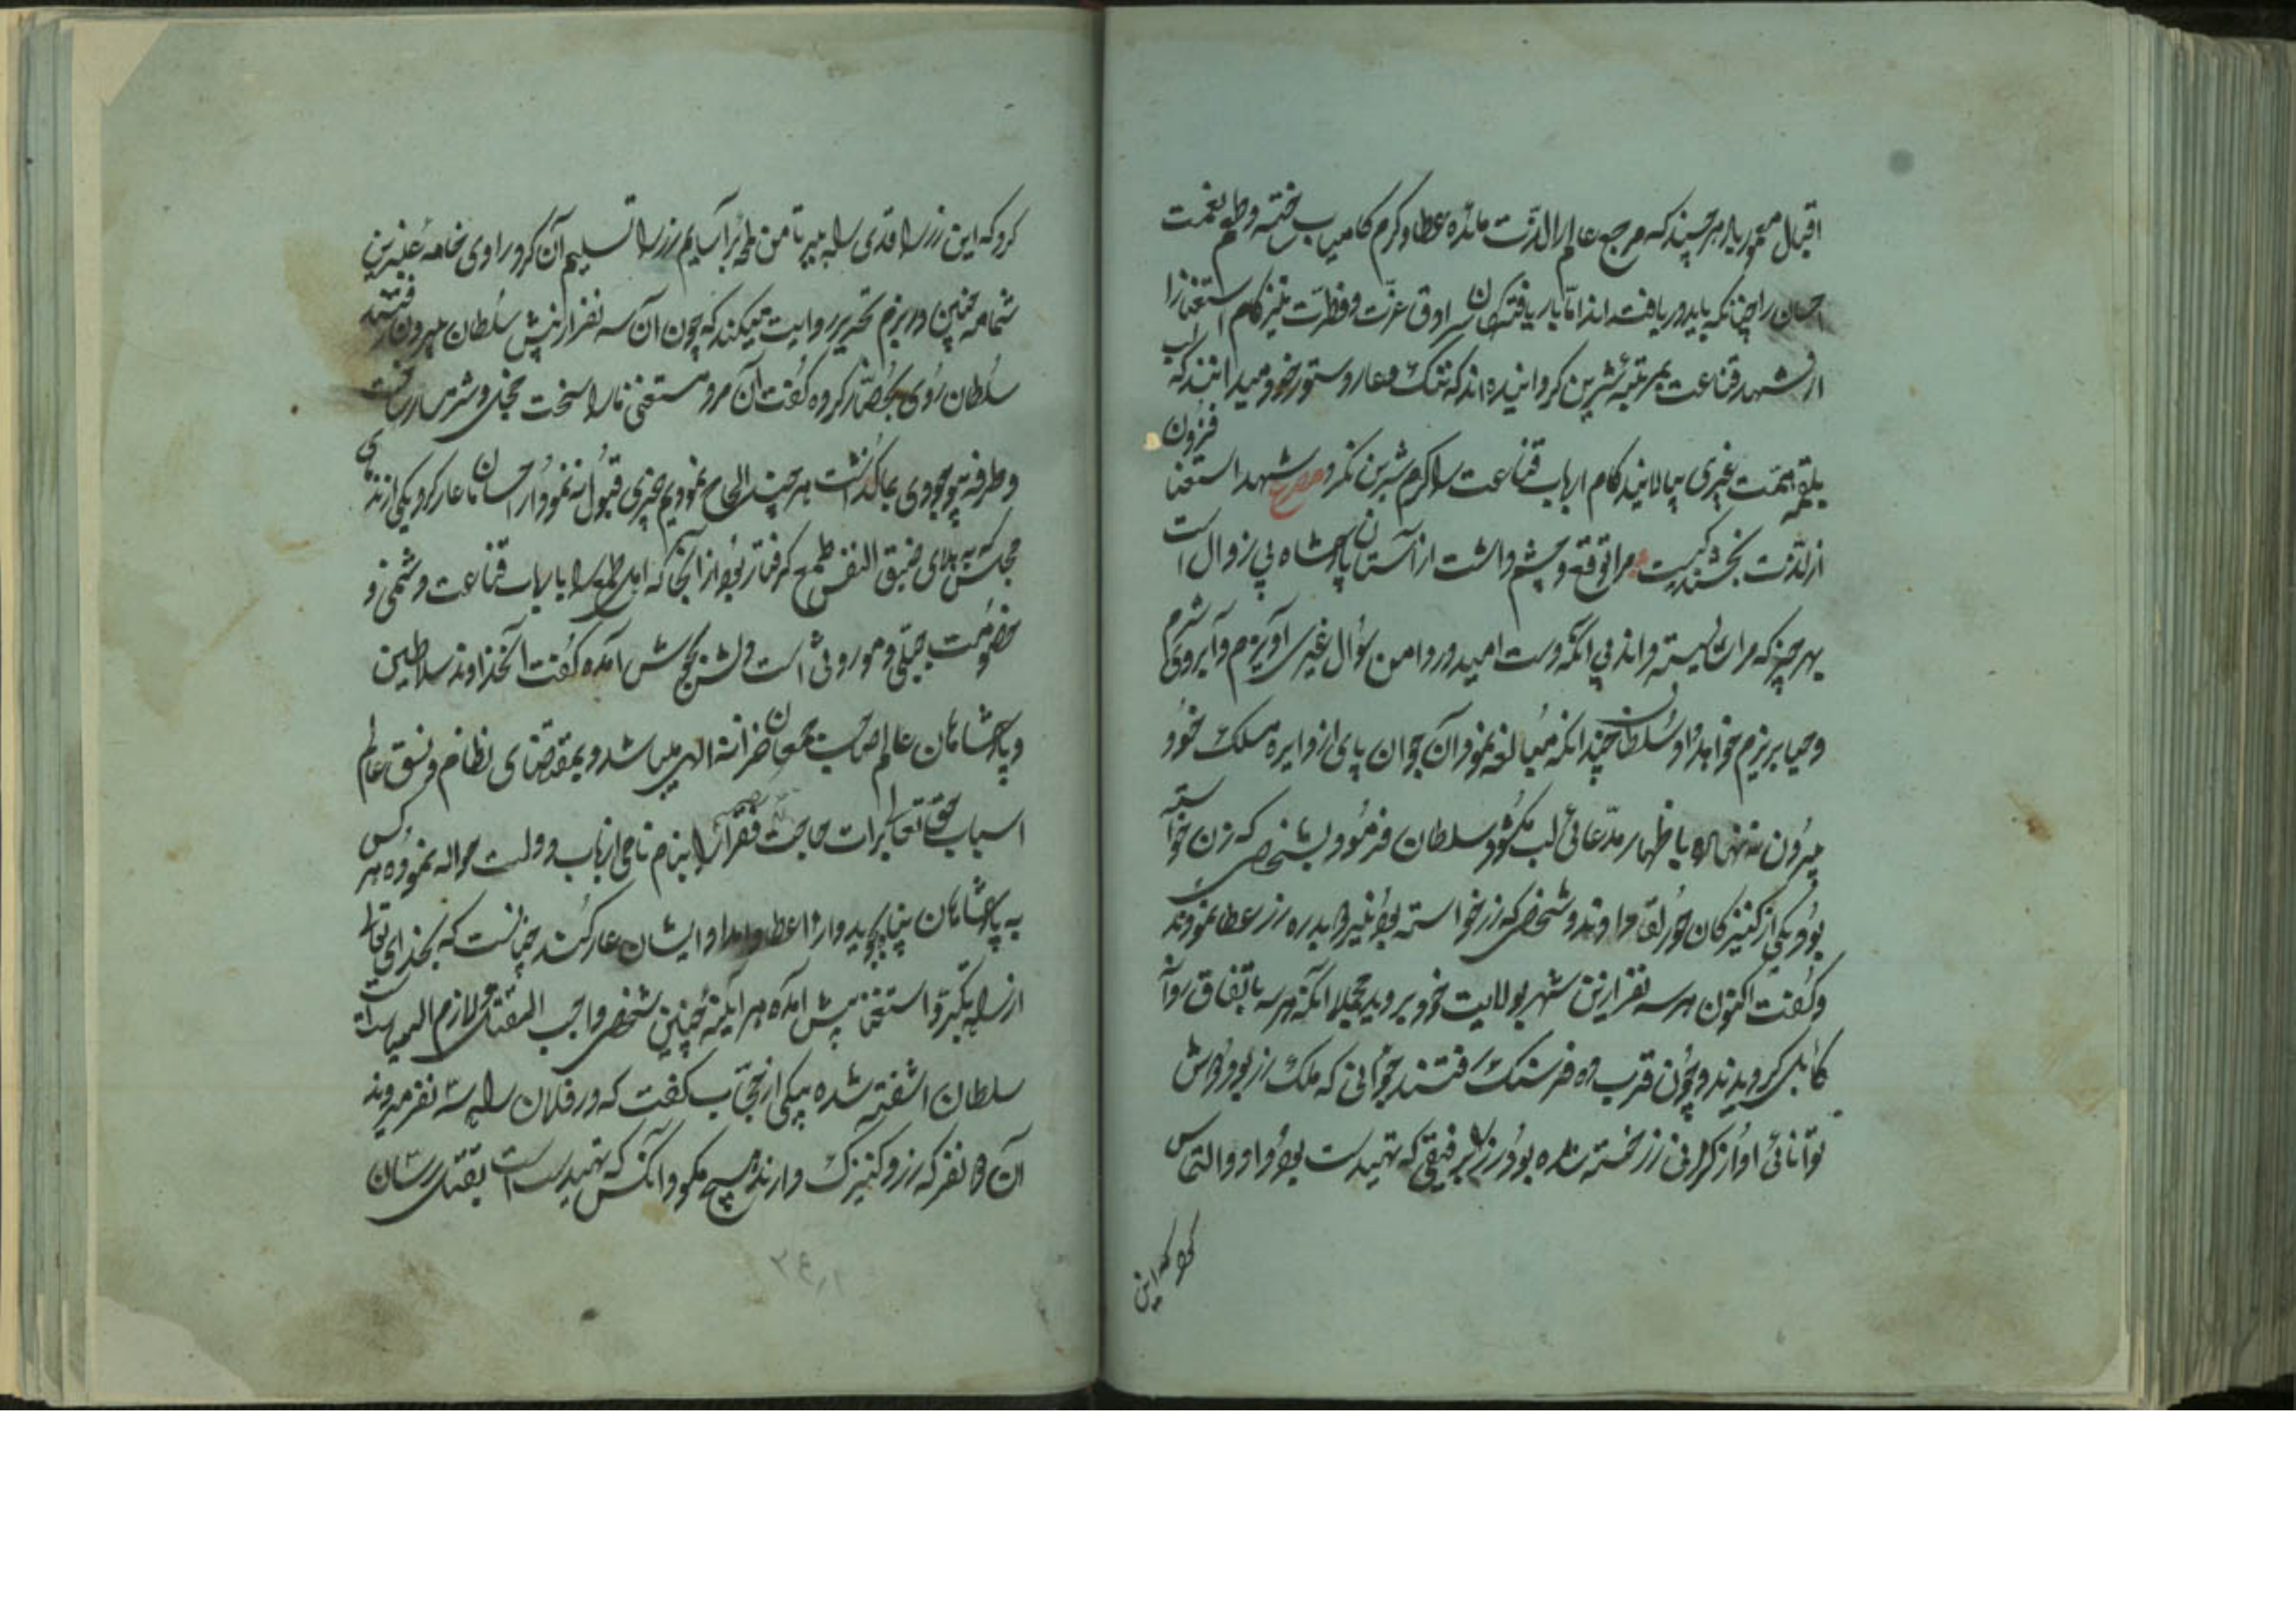 اقبال معمور باد هر چند که مرجع عالم را لذت مائده عطا و کرم کامیاب ساخته و طعم نعمت
احسان را چنانکه باید دریافته‌اند اما باریافتکان سرادق عزت و فطرت نیز کام استغنا را
از شهد قناعت بمرتبه شیرین کردانیده‌اند که ننک و عار دستور خود میدانند که لب
بلقمه همت غیری بیالایند کام ارباب قناعت را کرم شیرین نکرد مصرع شهد استغنا فزون
از لذت بخشندکیست مرا توقع و چشم داشت از آستان پادشاه بی زوال است
بهر چیز که مرا شایسته داند بی آنکه دست امید در دامن سؤال غیری آویزم و آبروی شرم
و حیا بریزم خواهد داد سلطان چندانکه مبالغه نمود آن جوان پای از دایره مسلک خود
بیرون ننهاده باظهار مدعائی لب نکشود سلطان فرمود بشخصی که زن خواسته
بود یکی از کنیزکان حور لقا دادند و شخصی که زر خواسته بود نیز ده بدره زر عطا نمودند
و کفت اکنون هر سه نفر ازین شهر بولایت خود بروید مجملا آنکه هر سه باتفاق روانه
کابل کردیدند و چون قرب ده فرسنک رفتند جوانی که ملک زر بود و دوش
توانائی او از کرانی زر خسته شده بود زر را برفیقی که تهیدست بود داد و التماس
کرد که این
کرد که این زر را قدری راه ببر تا من لمحه برآسایم زر را تسلیم آن کرد راوی خامه عنبرین
شمامه چنین در بزم تحریر روایت میکند که چون آن سه نفر از پیش سلطان بیرون رفتند
سلطان روی بحضار کرده کفت آن مرد مستغنی ما را سخت خجل و شرمسار ساخت
و طرفه بوجودی بما کذشت هر چند الحاح نمودیم چیزی قبول ننمود و از احسان ما عار کرد یکی از ندمای
مجلس که به بلای ضیق النفس طمع کرفتار بود از آنجا که اهل طمع را با ارباب قناعت دشمنی و
خصومت جبلی و موروثی است دلش بجوش آمده کفت ای خداوند سلاطین
و پادشاهان عالم صاحب جمعان خزانه الهی میباشند و بمقتضای نظام و نسق عالم
اسباب حق تعالی برات حاجت فقرا را بنام نامی ارباب دولت حواله نموده هر کس
به پادشاهان پناه نجوید و از عطا و امداد ایشان عار کند چنانست که بخدای تعالی
از راه تکبر و استغنا پیش آمده هر آینه چنین شخص واجب القتل و لازم السیاست است
سلطان آشفته شده بیکی از حجاب کفت که در فلان راه سه نفر میروند
آن دو نفر که زر و کنیزک دارند هیچ مکو و آنکس که تهیدست است بقتل رسان